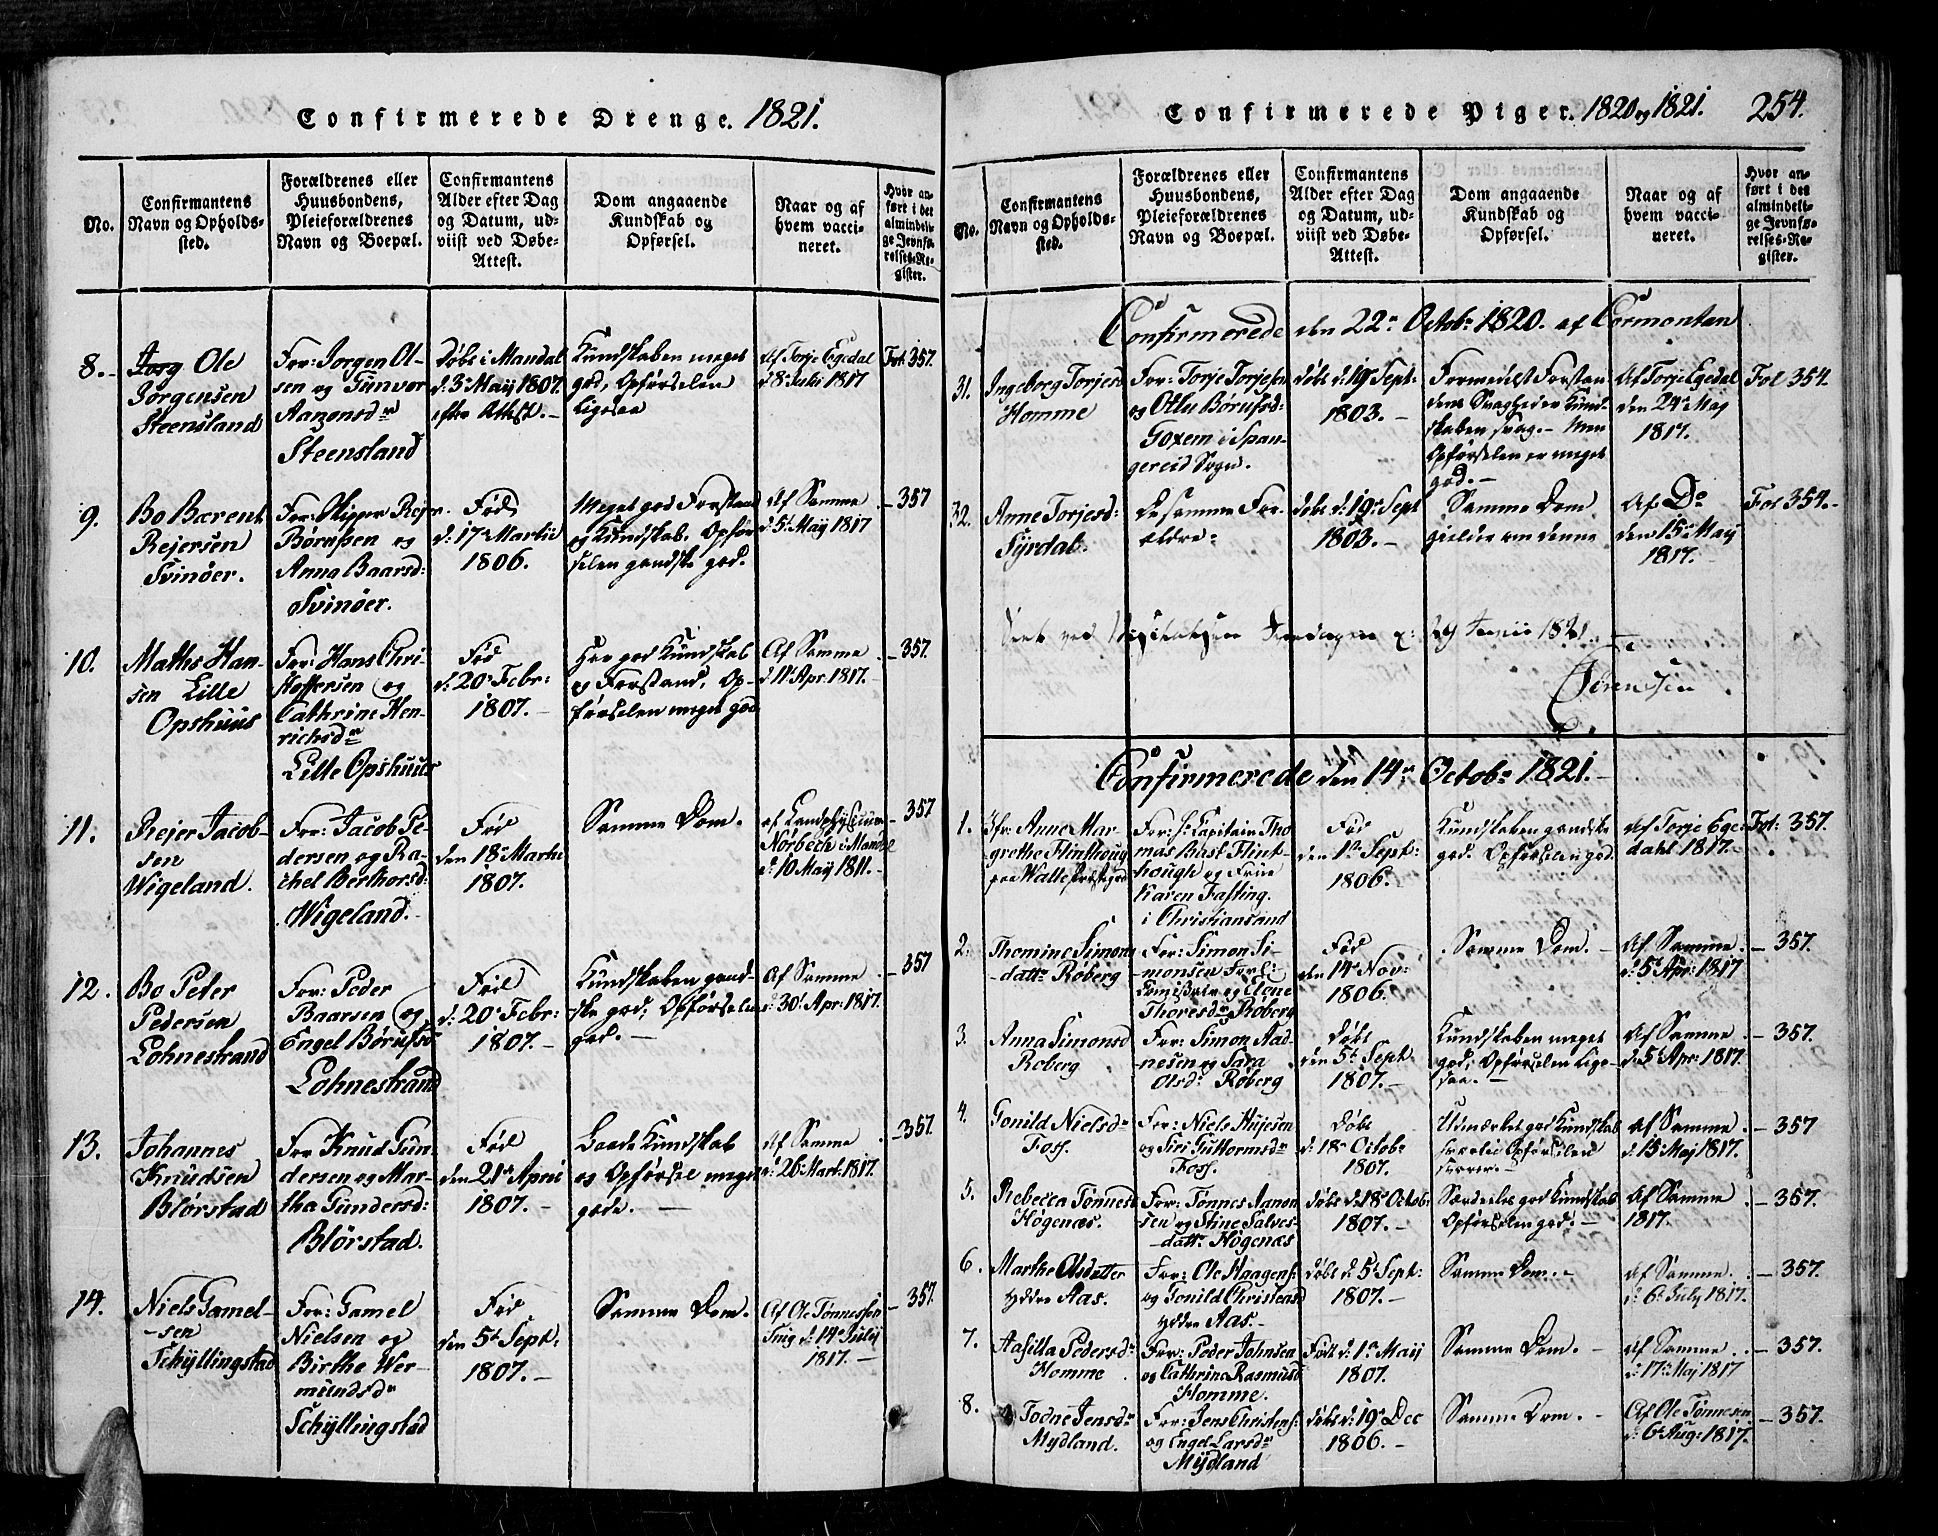 Confirmerede Drenge. 1821.
No.
Confirmantens
Navn og Opholds-
sted.
Forældrenes eller
Huusbondens,
Pleieforældrenes
Navn og Boepæl.
Confirmantens
Alder efter Dag
og Datum, ud-
viist ved Døbe-
Attest.
Dom angaaende
Kundskab og
Opførsel.
Naar og af
hvem vacci-
neret.
Hvor an-
ført i det
almindeli-
ge Jevnfø-
relses-Re-
gister.
8.
Jorg Ole
Jörgensen
Steensland
For: Jorgen Ol-
sen og Gunvor
Aanonsdr
Steensland
Döbt i Mandal
d: 3 Maij 1807
efter Attest.
Kundskaben meget
god, Opførselen
ligesaa
Af Torje Egedal
d: 8 Julii 1817
Fol: 357.
9.
Bo Bærent
Rejersen
Svinöer.
For: Skipper Rejer
Börufsen og
Anna Baarsd:
Svinöer.
Fød
d: 17 Martii
1806.
Meget god Forstand
og Kundskab. Opför-
selen gandske god.
Af Samme
d: 5t May 1817
357
10.
Mathis Han-
sen Lille
Opshuus
For: Hans Chri-
stoffersen og
Cathrine Hen-
richsdr
Lille Opshuus
Fød
d: 20 Febr:
1807.
Har god Kundskab
og Forstand, Op-
førselen meget god
Af Samme
d: 11 Apr: 1817.
357.
11.
Rejer Jacob-
sen
Wigeland.
For: Jacob Pe-
dersen og Ra-
chel Berthorsd:
Wigeland.
Fød
den 18 Martii
1807.
Samme Dom.
af Landphysicum
Nörbech i Mandal
d: 10 Maij 1811.
357
12.
Bo Peter
Pedersen
Lohnestrand
For: Peder
Baarsen og
Engel Börufsd
Lohnestrand
Fød
d: 20 Febr:
1807.
Kundskaben gand-
ske god, Opførselen
god.
Af Samme
d: 30 Apr: 1817.
357
13.
Johannes
Knudsen
Blörstad
For Knud Gun-
dersen og Mar-
tha Gundersd:
Blörstad.
Fød
den 21 April
1807.
Baade Kundskab
og Opförsel meget
gode.
Af Samme
d: 26 Mart: 1817.
357.
14.
Niels Gamel-
sen
Schyllingstad
For: Gamel
Nielsen og
Birthe Wer-
mundsdr
Schyllingstad
Fød
den 5t Sept:
1807.
Samme Dom.
Af Ole Tönnessen
Snig d: 14 Julij
1817.
357.
Confirmerede Piger. 1820 og 1821. 254.
No.
Confirmantens
Navn og Opholds-
sted.
Forældrenes eller
Huusbondens,
Pleieforældrenes
Navn og Boepæl.
Confirmantens
Alder efter Dag
og Datum, ud-
viist ved Døbe-
Attest.
Dom angaaende
Kundskab og
Opførsel.
Naar og af
hvem vacci-
neret.
Hvor an-
ført i det
almindeli-
ge Jevnfø-
relses-Re-
gister.
Confirmerede den 22 Octobr 1820. af Cormontan
31.
Ingeborg Torjesd
Homme
For: Torje Torjesen
og Ollu Börufsd:
Goxem i Span-
gereid Sogn.
döbt d: 19 Sept:
1803.
Formedelst Forstan-
dens Svaghed er Kund-
skaben svag. Men
Opførselen er meget
god.
Af Torje Egedal
den 24 Maj
1817.
Fol 354.
32.
Anne Torjesd:
Syrdal.
De samme For-
ældre.
döbt d: 19 Sept
1803.
Samme Dom
gielder om denne
Af Do
den 15 Maij
1817.
Fol 354.
Seet ved Visitatsen 29 Junii 1821.
Sörensen
Confirmerede den 14 Octobr 1821.
1.
Jfr Anne Mar-
grethe Flinthoug
paa Valle Præstegaard
For: Hr Capitain Tho-
mas Bast Flint-
hough og Frue
Karen Fasting.
i Christiansand
Fød
den 1te Sept:
1806.
Kundskaben gandske
god. Opførselen god.
Af Torje Ege-
dahl 1817.
Fol: 357.
2.
Thomine Simons-
dattr Röberg
For: Simon Si-
monsen Forli-
Comissair og Elene
Thoresdr Röberg
Fød
den 14 Nov:
1806.
Samme Dom.
Af Samme
d: 5t Apr: 1817
357.
3.
Anna Simonsd
Roberg
For: Simon Aad-
nesen og Sara
Olsdr Röberg
Döbt
den 5t Sept:
1807.
Kundskaben meget
god; Opførselen lige-
saa.
Af Samme
d: 5t Apr: 1817.
357.
4.
Gonild Nielsdr
Foss.
For: Niels Hujesen
og Siri Guttormsdr
Foss.
Döbt
d: 18 Octobr
1807.
Udmærket god Kundskab
Af Samme
d: 15 Maj 1817.
357
5.
Rebecca Tönnesd
Högenæs.
For: Tönnes Aanon-
sen og Stine Salves-
dattr Högenæs
döbt d: 18 Octobr
1807.
Særdeles god Kundskab
Opførselen god.
Af Samme
1817.
357.
6.
Marthe Olsdatter
Yddre Aas.
For: Ole Haagens:
og Gonild Christensd
Yddre Aas.
döbt d: 5t Sept:
1807.
Samme Dom.
Af Samme
d: 6 July 1817.
357.
7.
Aasilla Pedersdr
Homme
For: Peder Johnsen
og Cathrine Rasmusd
Homme.
Födt d: 1 Maij
1807.
Samme Dom.
Af Samme
d: 17 Maj 1817
357.
8.
Todne Jensdr
Mydland.
For: Jens Christens:
og Engel Larsdr
Mydland
döbt d: 19 Dec
1806.
Samme Dom.
Af Ole Tönnesen
d: 6 Aug: 1817.
357.